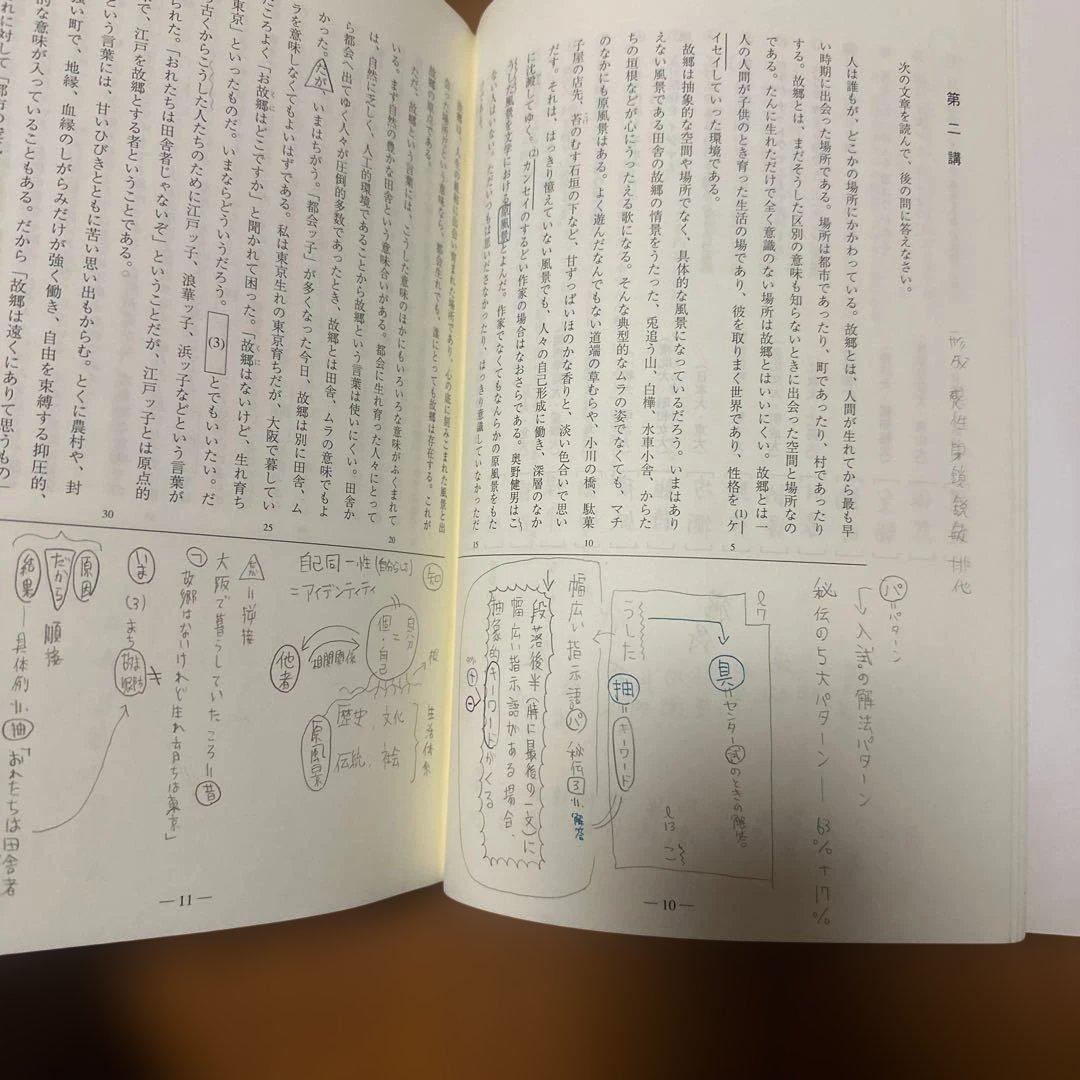 第二講
形成 感性 閉鎖 鋭敏 排他
次の文章を読んで、後の問に答えなさい。
人は誰もが、どこかの場所にかかわっている。故郷とは、人間が生れてから最も早
い時期に出会った場所である。場所は都市であったり、町であったり、村であったり
する。故郷とは、まだそうした区別の意味も知らないときに出会った空間と場所なの
である。たんに生れただけで全く意識のない場所は故郷とはいいにくい。故郷とは一
人の人間が子供のとき育った生活の場であり、彼を取りまく世界であり、性格を(1)ケ
イセイしていった環境である。
故郷は抽象的な空間や場所でなく、具体的な風景になっているだろう。いまはあり
えない風景である田舎の故郷の情景をうたった、兎追う山、白樺、水車小舎、からた
ちの垣根などが心にうったえる歌になる。そんな典型的なムラの姿でなくても、マチ
のなかにも原風景はある。よく遊んだなんでもない道端の草むらや、小川の橋、駄菓
子屋の店先、苔のむす石垣の下など、甘ずっぱいほのかな香りと、淡い色合いで思い
だす。それは、はっきり憶えていない風景でも、人々の自己形成に働き、深層のなか
に沈澱してゆく。(2)カンセイのするどい作家の場合はなおさらである。奥野健男はこ
うした風景を文学における原風景とよんだ。作家でなくてもなんらかの原風景をもた
ない人はいない。ただいつもは思いださなかったり、はっきり意識していなかっただ
5
10
15
パ=パターン
入試の解法パターン
秘伝の5大パターン― 63% + 17%
l7
うした
具=センター式のときの解答。
抽=キーワード
l13 こ
幅広い指示語 パ 秘伝3=解答
段落後半(特に最後の一文)に
幅広い指示語がある場合、
抽象的キーワードがくる
―10―
会った場所という意味なら、都会生れでも、誰にとっても故郷は存在する。これが
故郷の原点である。
ただ、故郷という言葉には、こうした意味のほかにもいろいろな意味がふくまれて
いる。まず自然の豊かな田舎という意味合いがある。都会に生れ育った人々にとって
は、自然に乏しく、人工的環境であることから故郷という言葉は使いにくい。田舎か
ら都会へ出てゆく人々が圧倒的多数であったとき、故郷とは田舎、ムラの意味でもよ
かった。だが、いまはちがう。「都会ッ子」が多くなった今日、故郷は別に田舎、ム
ラを意味しなくてもよいはずである。私は東京生れの東京育ちだが、大阪で暮してい
たころよく、「お故郷はどこですか」と聞かれて困った。「故郷はないけど、生れ育ち
東京」といったものだ。いまならどういうだろう。(3)とでもいいたい。だ
古くからこうした人たちのために江戸ッ子、浪華ッ子、浜ッ子などという言葉が
られた。「おれたちは田舎者じゃないぞ」ということだが、江戸ッ子とは原点的
で、江戸を故郷とする者ということである。
という言葉には、甘いひびきとともに苦い思い出もからむ。とくに農村や、封
強い町で、地縁、血縁のしがらみだけが強く働き、自由を束縛する抑圧的、
的な意味が入っていることもある。だから「故郷は遠くにありて思うもの」
20
25
30
知
自己同一性(自分らしさ)
=アイデンティティ
自分
個=自己
相関関係
他者
根
歴史、文化
伝統、社会
生活体系
原風景
だが=逆接
大阪で暮らしていたころ=昔
故郷はないけれど生れ育ちは東京」
いま(3) まち 故郷
原因
だから 順接
結果―具体例=抽「おれたちは田舎者
―11―